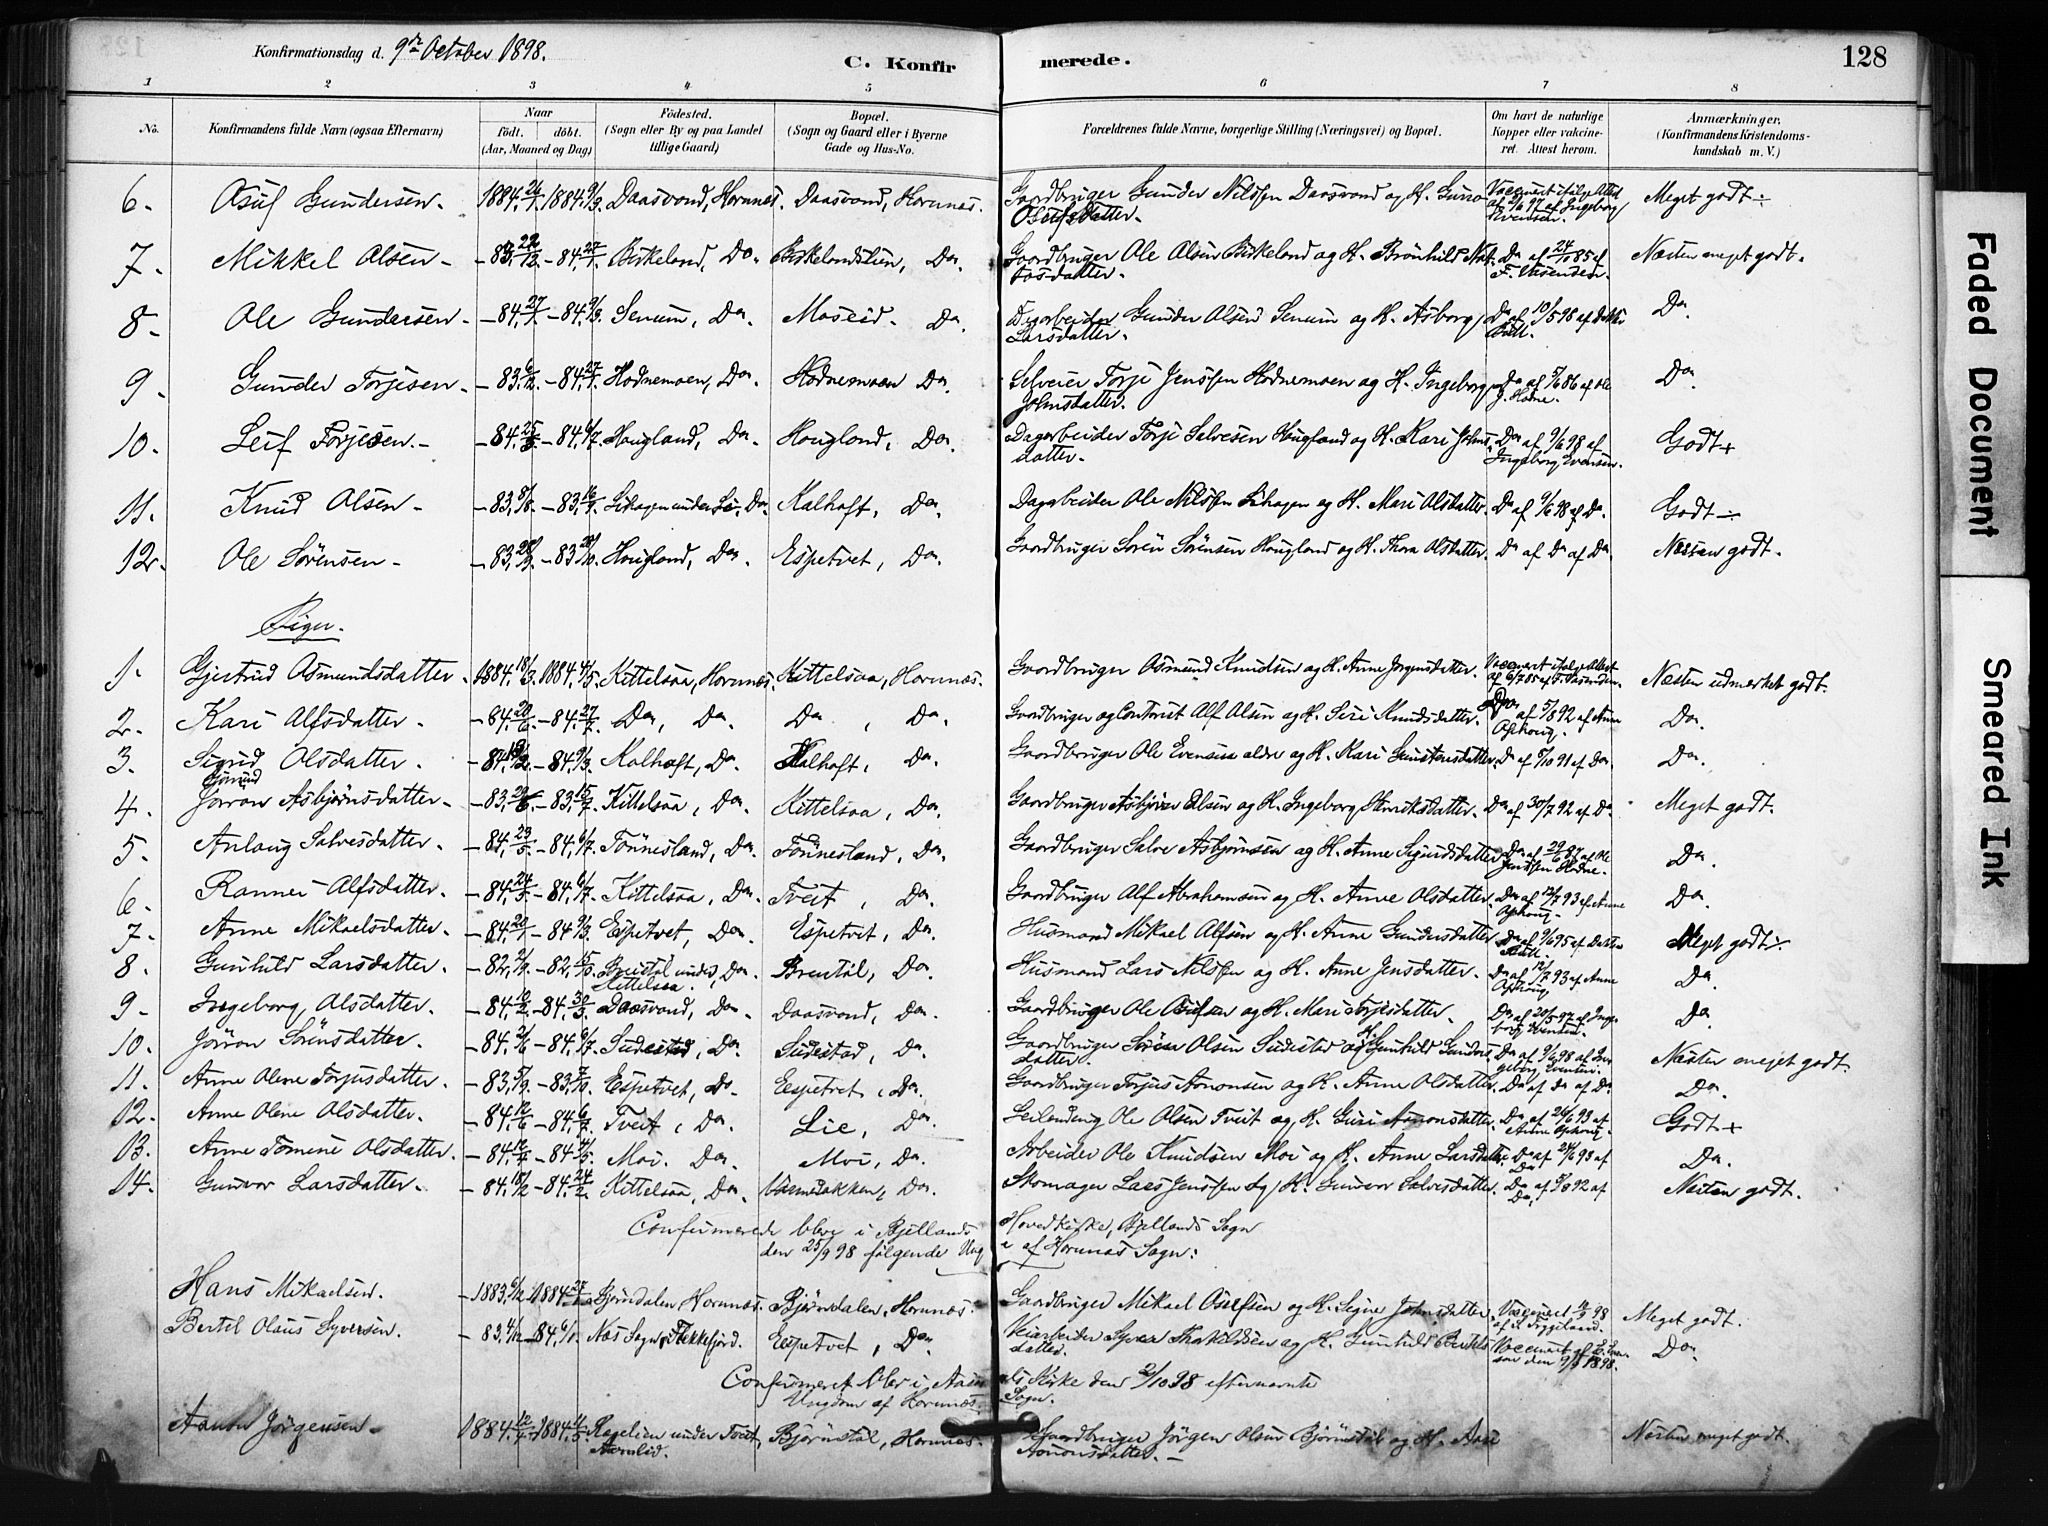 Konfirmationsdag d. 9de October 1898.
C. Konfirmerede.
128
1 2 3 4 5 6 7 8
No.
Konfirmandens fulde Navn (ogsaa Efternavn)
Naar
födt. döbt.
(Aar, Maaned og Dag)
Födested.
(Sogn eller By og paa Landet
tillige Gaard)
Bopæl.
(Sogn og Gaard eller i Byerne
Gade og Hus-No.
Forældrenes fulde Navne, borgerlige Stilling (Næringsvei) og Bopæl.
Om havt de naturlige
Kopper eller vakcine-
ret. Attest herom.
Anmærkninger.
(Konfirmandens Kristendoms-
kundskab m. V.)
6. Osuf Gundersen. 1884. 26/1. 1884. 9/3. Daasvand, Hornnæs. Daasvand, Hornnæs. Gaardbruger Gunder Nilssen Daasvand og H. Gurro Osufsdatter. Vaccineret ifølge Attest af 2/6 97 af Ingeborg Evensen. Meget godt ÷
7. Mikkel Olsen - 83. 22/12. - 84. 27/1. Birkeland, Do. Birkelandslien, Do. Gaardbruger Ole Olsen Birkeland og H. Brönhild Do af 24/9 85 af Meget godt.
8. Ole Gundersen - 84. 27/1. - 84. 9/3. Senum, Do. Moseid. Do. Gunder Olsen Senum og H. Asborg Larsdatter. Do af 10/5 98 af Do.
9. Gunder Torjesen - 83. 6/12. - 84. 27/1. Hodnemoen, Do. Hodnemoen Do. Selveier Torje Jenssen Hodnemoen og H. Ingeborg Johnsdatter. Do af 5/6 86 af Ole J. Hodne. Do.
10. Leif Torjesen. - 84. 25/5. - 84. 6/7. Hougland, Do. Hougland, Do. Dagarbeider Torje Salvesen Hougland og H. Kari Johns datter. Do af 9/6 98 af Ingeborg Evensen. Godt +
11. Knud Olsen - 83. 8/8. - 83. 16/9. Lihagen under Li, Do. Kalhoft, Do. Dagarbeider Ole Nilssen Lihagen og H. Mari Olsdatter. Do af 9/6 98 af Do. Godt ÷
12. Ole Sörensen - 83. 28/9. - 83 28/10. Hougland, Do. Espetvet, Do. Gaardbruger Sören Sörensen Hougland og H. Thora Olsdatter. Do af Do af Do. Næsten godt.
Piger.
1. Gjertrud Osmundsdatter. 1884. 18/3. 1884. 4/5. Kittelsaa, Hornnæs. Kittelsaa, Hornnæs. Gaardbruger Osmund Knudsen og H. Anne Jörgensdatter. Vaccineret ifølge Attest af 6/7 85 af Næsten udmerket godt.
2. Kari Alfsdatter. - 84. 20/6. - 84. 27/7. Do, Do. Do, Do. Gaardbruger og Alf Olsen og H. Siri Knudsdatter. Do af 5/8 92 af Anne Do.
3. Sigrid Olsdatter. - 84. - 84. 9/3. Kalhoft, Do. Kalhoft, Do. Gaardbruger Ole Evensen ældre og H. Kari Gunstensdatter. Do af 8/10 91 af Do. Do.
4. Jörron Asbjörnsdatter. - 83. - 83. 15/7. Kittelsaa, Do. Kittelsaa, Do. Gaardbruger Asbjörn Olsen og H. Ingeborg Henriksdatter. Do af 30/7 92 af Do. Meget godt.
5. Anlaug Salvesdatter. - 84. 23/5. - 84. 6/7. Tönnesland, Do. Tönnesland, Do. Gaardbruger Salve Asbjörnsen og H. Anne Sigurdsdatter Do af 29/6 87 af Ole Jenssen Hodne. Do.
6. Rannei Alfsdatter. - 84. 24/5. - 84. 6/7. Kittelsaa, Do. Tveit, Do. Gaardbruger Alf Abrahamsen og H. Anne Olsdatter. Do af 12/7 93 af Anne Do.
7. Anne Mikaelsdatter. - 84. 20/1. - 84 9/3. Espetvet, Do. Espetvet, Do. Husmand Mikael Alfsen og H. Anne Gundersdatter Do af 9/6 95 af Meget godt ÷
8. Gunhild Larsdatter. - 82. 2/9. - 82. 15/10. Breistöl under Kittelsaa, Do. Breistöl, Do. Husmand Lars Nilssen og H. Anne Jensdatter. Do af 12/7 93 af Anne Do.
9. Ingeborg Olsdatter. - 84. 10/2. - 84. 30/3. Daasvand, Do. Daasvand, Do. Gaardbruger Ole Osufsen og H. Mari Torjesdatter. Do af 20/5 97 af Inge borg Evensen. Do.
10. Jörron Sörensdatter. - 84. 2/6. - 84. 6/7. Sudestad, Do. Sudestad, Do. Gaardbruger Sören Olsen Sudestad og H. Gunhild Gunders datter. Do af 9/6 98 af Inge borg Evensen. Næsten meget godt.
11. Anne Olene Torjusdatter. - 83. 5/9. - 83. 7/10. Espetvet, Do. Espetvet, Do. Gaardbruger Torjus Aanonsen og H. Anne Olsdatter. Do af do af Do Do.
12. Anne Olene Olsdatter. - 84. 12/6. - 84. 6/7. Tveit, Do. Lie, Do. Leilending Ole Olsen Tveit og H. Guri Aanonsdatter Do af 26/6 93 af Anne Godt +
13. Anne Tomine Olsdatter. - 84. - 84. 4/5. Moi. Do. Moi, Do. Arbeider Ole Knudsen Moi og H. Anne Larsdatter. Do af 24/6 93 af Do. Do.
14. Gunvor Larsdatter. - 84. 18/2 - 84. 24/2. Kittelsaa, Do. Do. Skomager Lars Jenssen og H. Gunvor Salvesdatter. Do af 5/8 92 af Do. Næsten godt.
Confirmerede blev i Bjellands Hovedkirke, Bjellands Sogn
den 25/9 98 følgende Ung af Hornnæs Sogn:
Hans Mikaelsen. - 1883. 6/12. 1884 27/1. Bjørndalen, Hornnæs. Bjørndalen, Hornnæs. Gaardbruger Mikael Osufsen og H. Signe Johnsdatter. Vaccineret 98 Meget godt.
Bertel Olaus Syversen. - 83. 4/12. - 84. 6/1. Næs Sogn, Flekkefjord. Espetvet, Do. Veiarbeider Syver og H. Gunhild Bertels datter. Vaccineret af den 9/8 1898. Do.
Confirmeret blev i Kirke den 2/10 98 efternævnte
Ungdom af Hornnæs Sogn.
Aanon Jörgensen. 1884. 12/4. 1884. 11/5. under Tveit, Bjørnstöl, Hornnæs. Gaardbruger Jörgen Olsen Bjørnstöl og H. Aase Aanonsdatter. - Næsten meget godt.
Faded Document
Smeared Ink